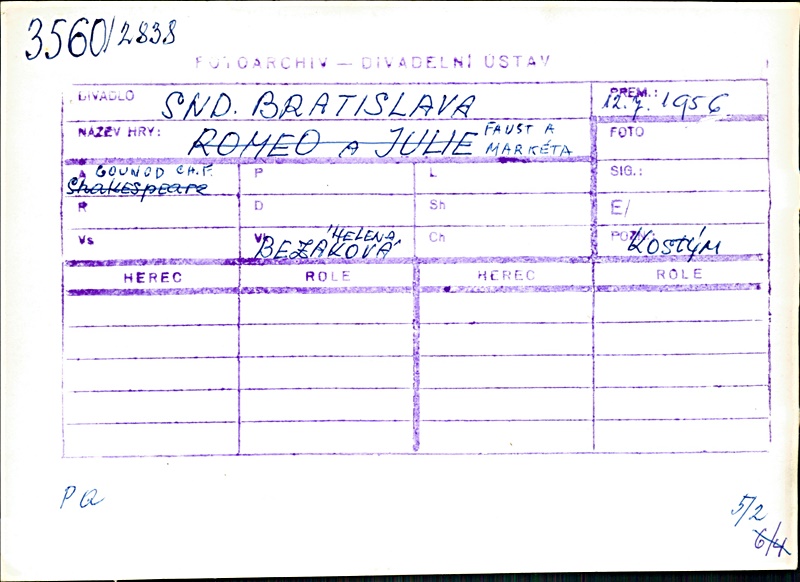 3560/2838
FOTOARCHIV — DIVADELNÍ ÚSTAV
DIVADLO SND. BRATISLAVA PREM.: 12.7.1956
NÁZEV HRY: ROMEO A JULIE FAUST A MARKÉTA FOTO
A GOUNOD CH. F. Shakespeare P L SIG.:
R D Sh E/
Vs VK HELENA BEZÁKOVÁ Ch POZN. KOSTÝM
HEREC ROLE HEREC ROLE
5/2
6/4